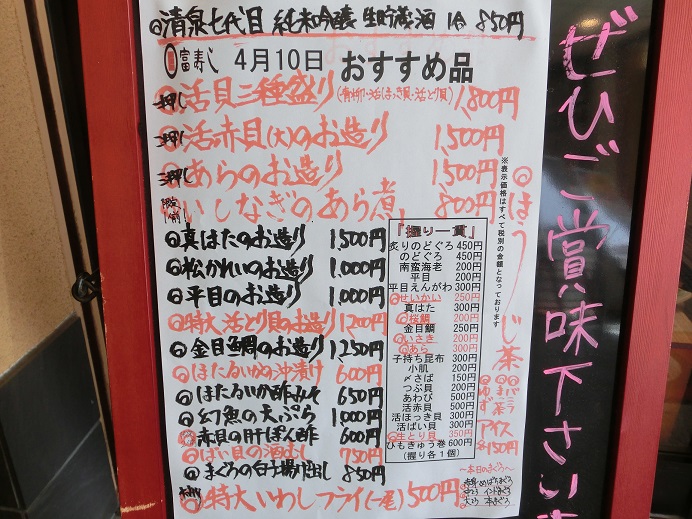 ◎清泉七代目 純米吟醸 生貯蔵酒 850円
富寿し 4月10日 おすすめ品
一押し 活貝三種盛り(青柳・活ほっき貝・活とり貝) 1,800円
二押し 活赤貝(大)のお造り 1,500円
三押し ◎あらのお造り 1,500円
いしなぎのあら煮 800円
◎真はたのお造り 1,500円
◎松かれいのお造り 1,000円
◎平目のお造り 1,000円
◎特大活とり貝のお造り 1200円
◎金目鯛のお造り 1250円
◎ほたるいかの沖漬け 600円
◎ほたるいか酢みそ 650円
◎幻魚の天ぷら 1,000円
◎赤貝の肝ぽん酢 600円
◎ばい貝の酒むし 750円
◎まぐろの白子揚げ出し 850円
◎特大いわしフライ(一尾) 500円
『握り一貫』
炙りのどぐろ 450円
のどぐろ 450円
南蛮海老 200円
平目 200円
平目えんがわ 300円
◎せいかい 250円
真はた 300円
◎桜鯛 200円
金目鯛 250円
◎いさき 200円
◎あら 300円
子持ち昆布 300円
小肌 200円
〆さば 150円
つぶ貝 200円
あわび 500円
活赤貝 500円
活ほっき貝 300円
活ばい貝 300円
◎生とり貝 350円
ひもきゅう巻 600円
(握り各1個)
※表示価格はすべて税別の金額となっております
◎ほうじ茶
◎バニラ
◎ゆず
アイス
各150円
〜本日のまぐろ〜
ぜひご賞味下さい